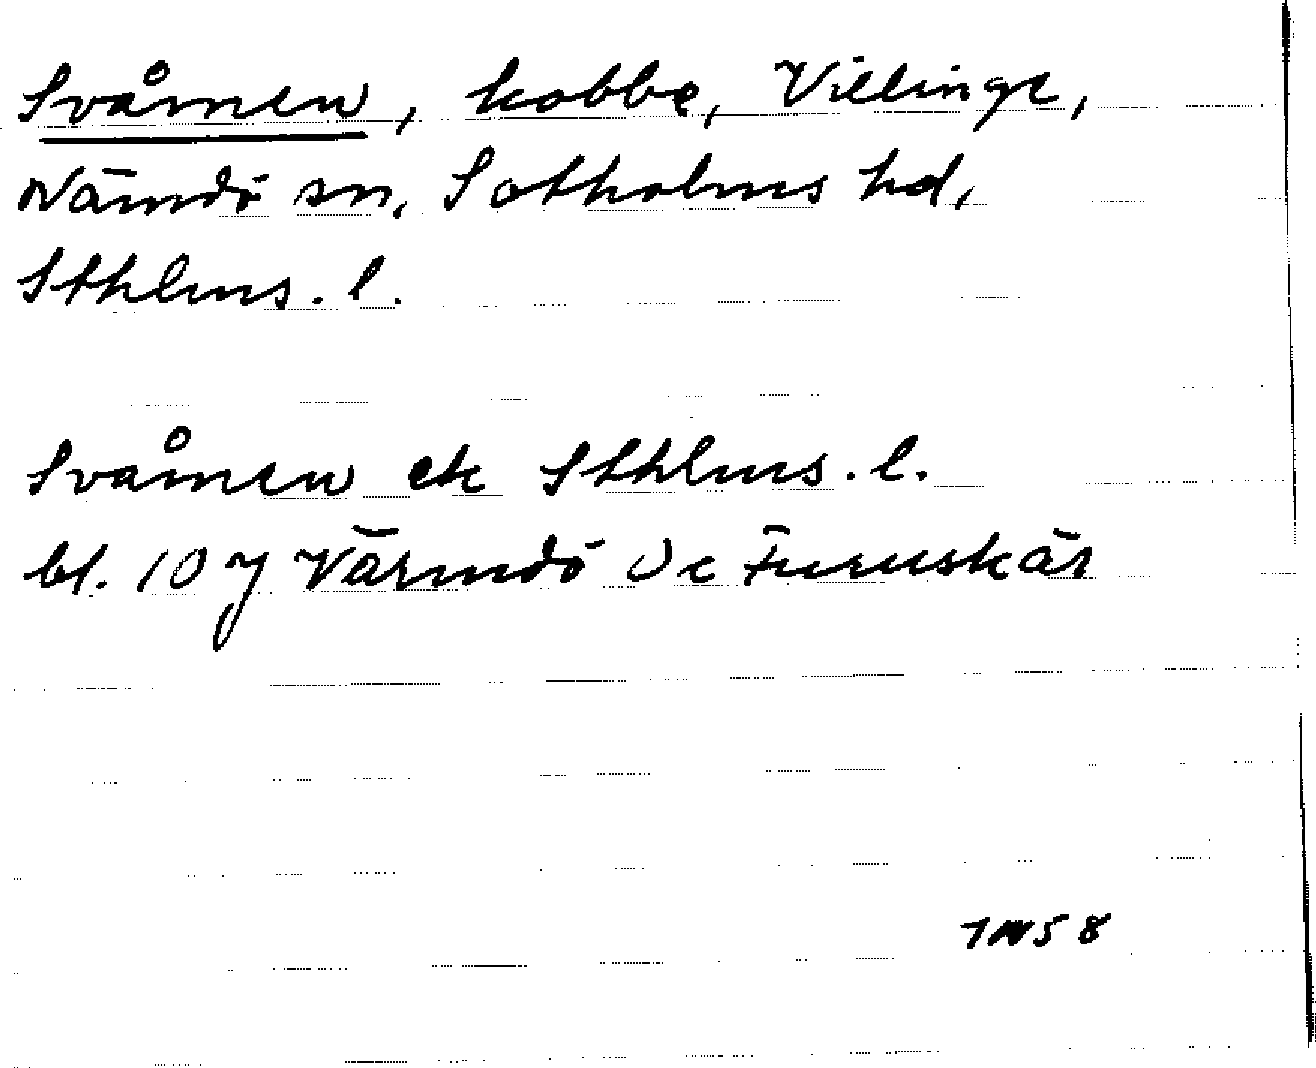 Svåmen, kobbe, Villinge,
Nämdö sn, Sotholms hd,
Sthlms. l.
Svåmen ek Sthlms. l.
bl. 107 Värmdö Oc Furuskär